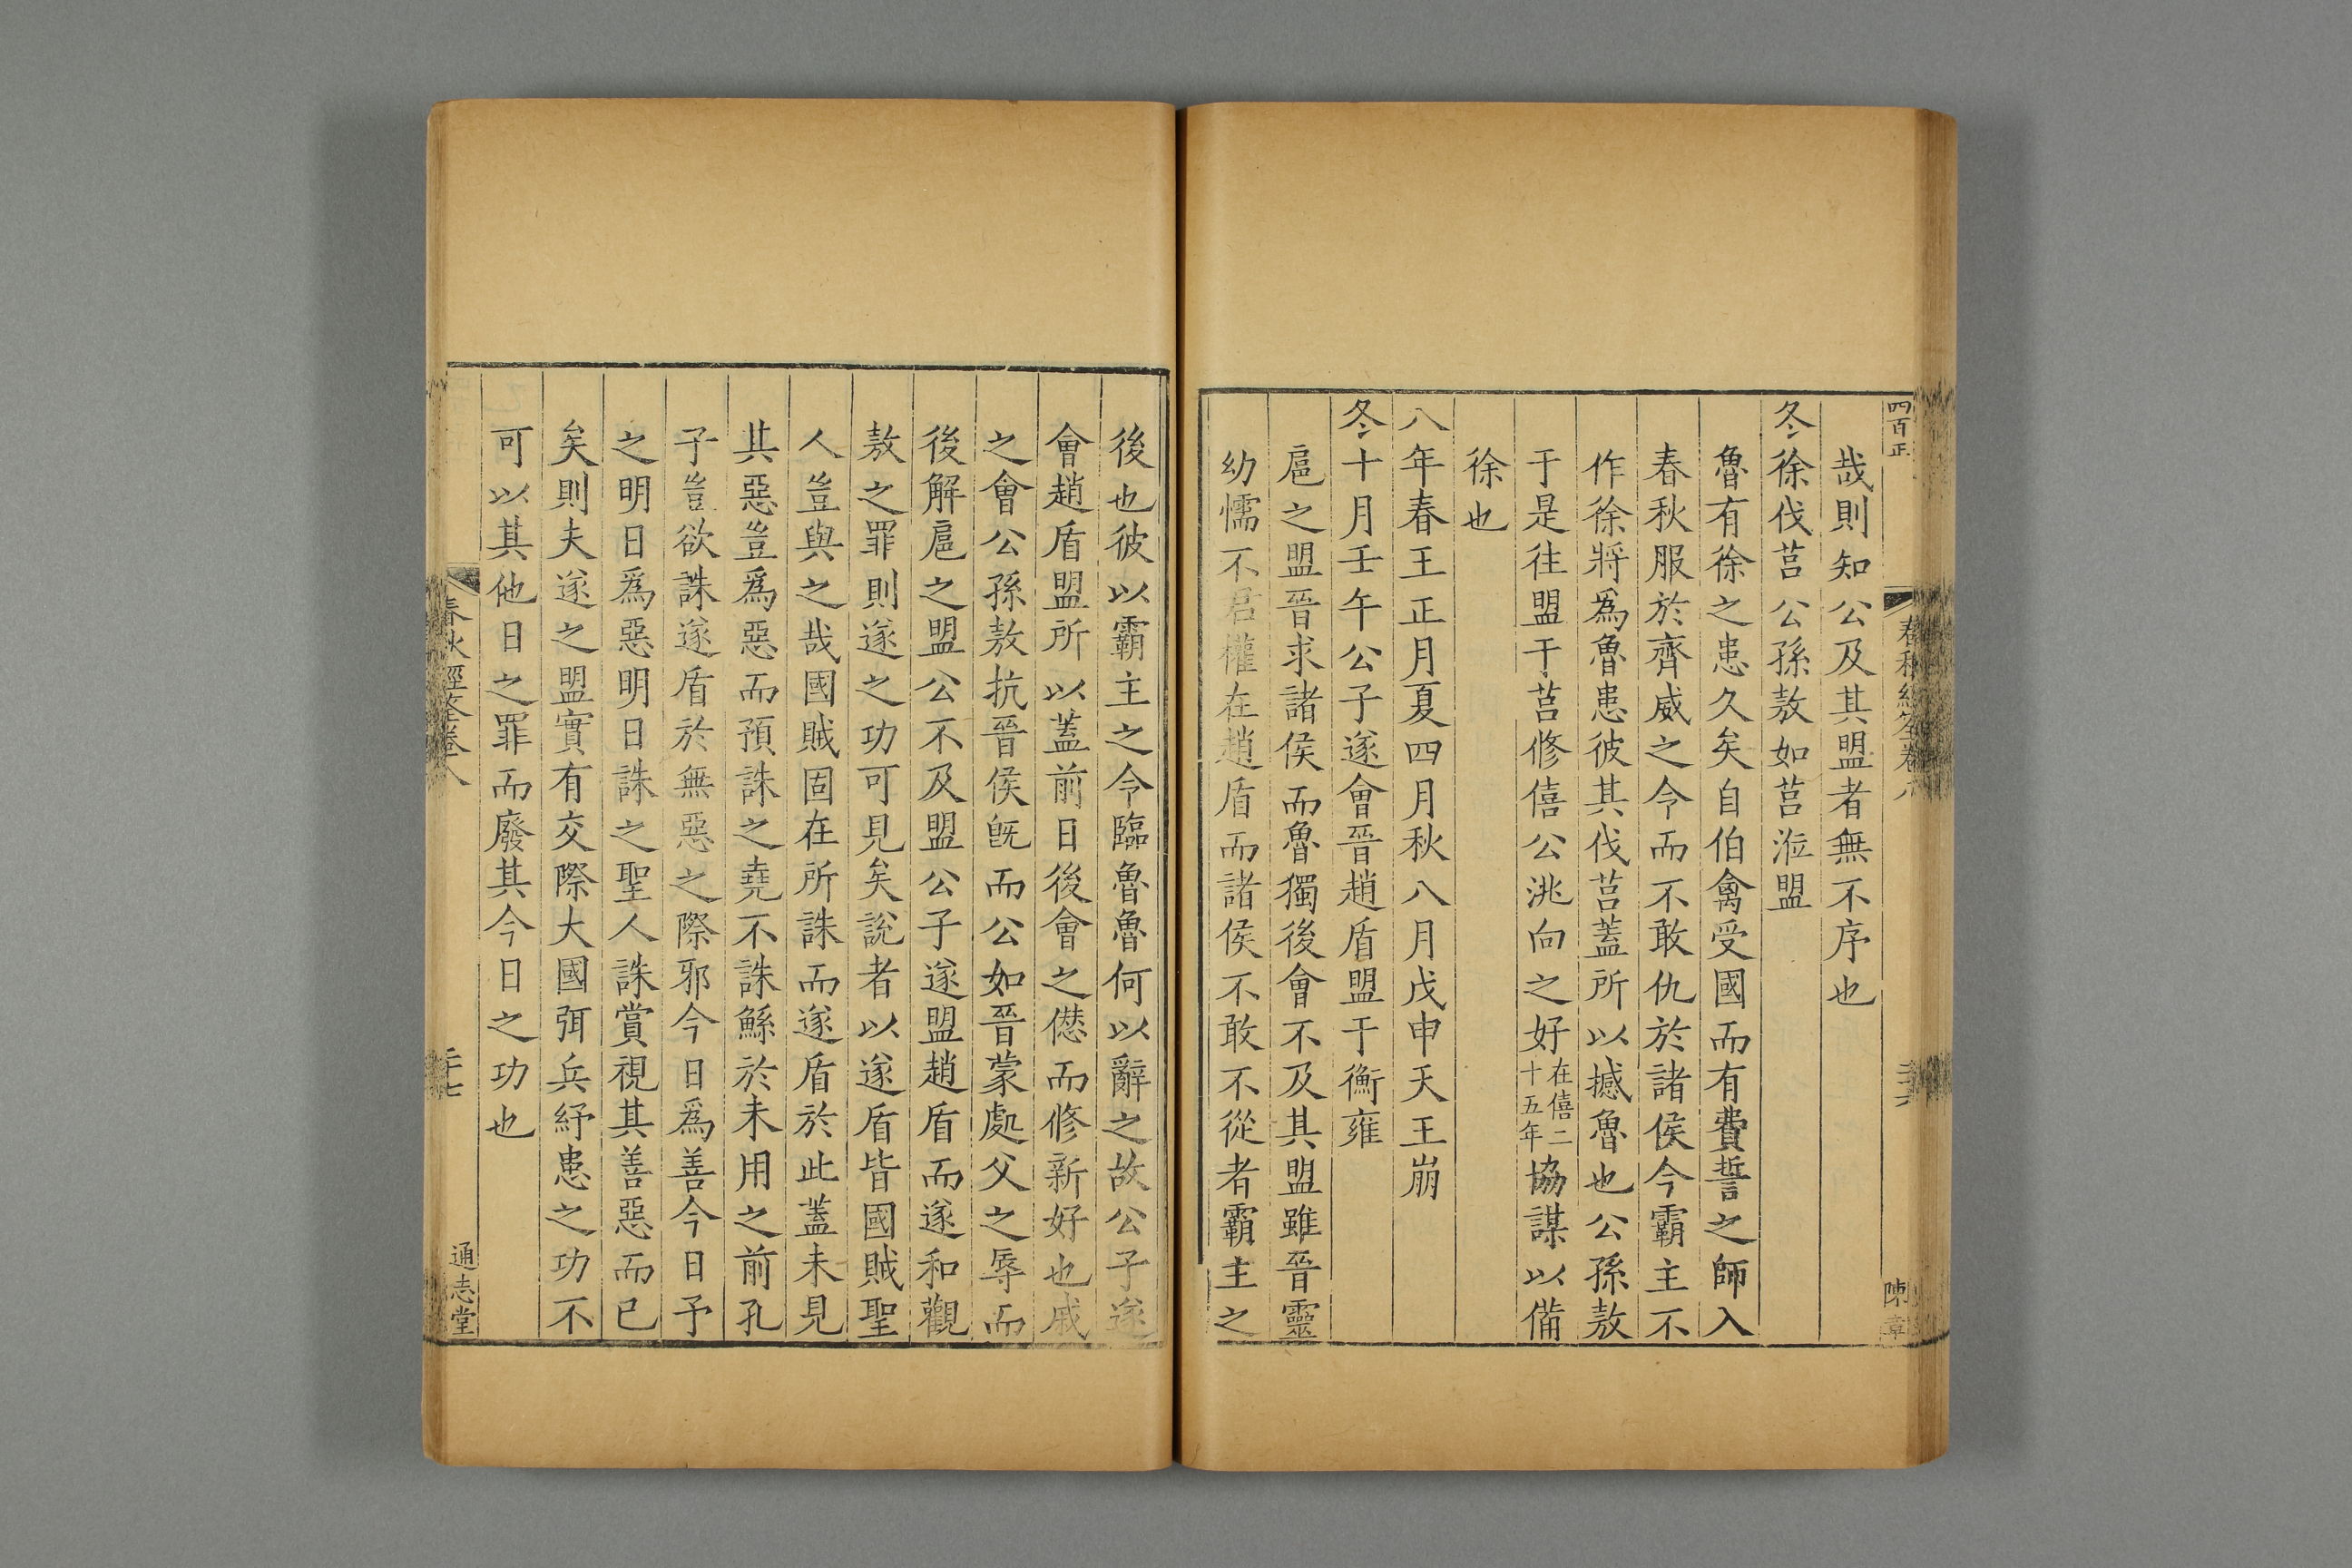 四百正
春秋經筌卷八
陳章
哉則知公及其盟者無不序也
冬徐伐莒公孫敖如莒涖盟
魯有徐之患久矣自伯禽受國而有費誓之師入
春秋服於齊威之令而不敢仇於諸侯今霸主不
作徐將爲魯患彼其伐莒蓋所以撼魯也公孫敖
于是往盟于莒修僖公洮向之好在僖二十五年協謀以備
徐也
八年春王正月夏四月秋八月戊申天王崩
冬十月壬午公子遂會晉趙盾盟于衡雍
扈之盟晉求諸侯而魯獨後會不及其盟雖晉靈
幼懦不君權在趙盾而諸侯不敢不從者霸主之
後也彼以霸主之令臨魯魯何以辭之故公子遂
會趙盾盟所以蓋前日後會之愆而修新好也戚
之會公孫敖抗晉侯旣而公如晉蒙處父之辱而
後解扈之盟公不及盟公子遂盟趙盾而遂和觀
敖之罪則遂之功可見矣說者以遂盾皆國賊聖
人豈與之哉國賊固在所誅而遂盾於此蓋未見
其惡豈爲惡而預誅之堯不誅鯀於未用之前孔
子豈欲誅遂盾於無惡之際邪今日爲善今日予
之明日爲惡明日誅之聖人誅賞視其善惡而已
矣則夫遂之盟實有交際大國弭兵紓患之功不
可以其他日之罪而廢其今日之功也
春秋經筌卷八
二十七
通志堂